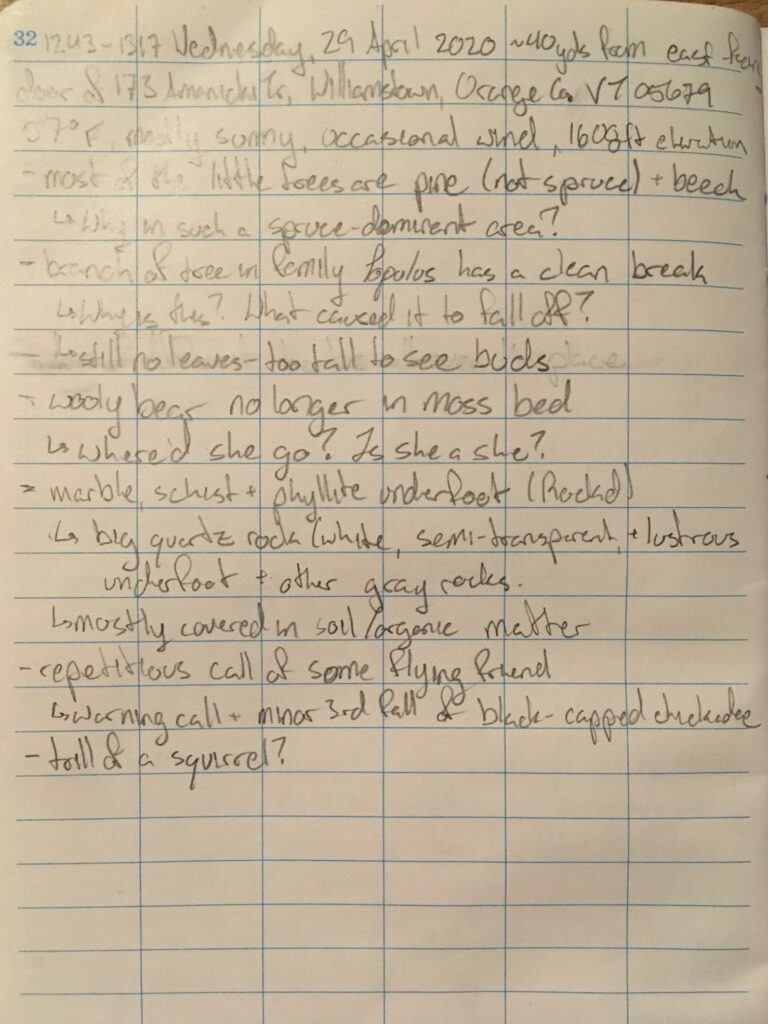 32 1243-1317 Wednesday, 29 April 2020 ~40yds from east facing
door of 173 Tr, Williamstown, Orange Co. VT 05679
57°F, mostly sunny, occasional wind, 1608ft elevation
- most of the little trees are pine (not spruce) + beech
↳ Why in such a spruce-dominant area?
- branch of tree in family Populus has a clean break
↳ Why is this? What caused it to fall off?
- ↳ still no leaves - too tall to see buds
- wooly bear no longer in moss bed
↳ where'd she go? Is she a she?
- marble, schist + phyllite underfoot (Rockd)
↳ big quartz rock (white, semi-transparent, + lustrous
underfoot + other gray rocks.
↳ mostly covered in soil/organic matter
- repetitious call of some flying friend
↳ warning call + minor 3rd fall of black-capped chickadee
- trill of a squirrel?